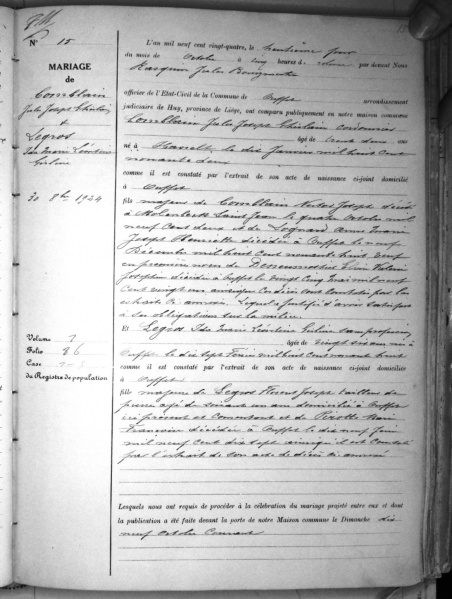 N° 15
MARIAGE
de
Comblain
Jules Joseph Ghislain
&
Legros
Ida Marie Léontine
Ghislaine
30 8bre 1924
Volume 7
Folio 86
Case
du Registre de population
L'an mil neuf cent vingt-quatre, le trentième jour
du mois de Octobre à cinq heures de relevée, par devant Nous
Jules
officier de l'Etat-Civil de la Commune de Ouffet arrondissement
judiciaire de Huy, province de Liége, ont comparu en notre maison commune
Comblain Jules Joseph Ghislain cordonnier
âgé de trente deux ans
né à le dix Janvier mil huit cent
nonante deux
comme il est constaté par l'extrait de son acte de naissance ci-joint domicilié
à Ouffet
fils majeur de Comblain Joseph décédé
à Molenbeek Saint Jean le quatre Octobre mil
neuf cent deux et de Marie
Joseph Henriette décédée à Ouffet le neuf
Décembre mil huit cent nonante huit veuf
en premières noces de
Joséphine décédée à Ouffet le vingt cinq Mai mil neuf
cent vingt un ainsi que ces décès sont constatés par les
extraits ci-annexés. Lequel a justifié d'avoir satisfait
à ses obligations sur la milice.
Et Legros Ida Marie Léontine sans profession
âgée de vingt six ans née à
Ouffet le dix sept mil huit cent nonante huit
comme il est constaté par l'extrait de son acte de naissance ci-joint domiciliée
à Ouffet
fille majeure de Legros Joseph tailleur de
pierres âgé de soixante un ans domicilié à Ouffet
ici présent et consentant et de Marie
Françoise décédée à Ouffet le dix neuf Juin
mil neuf cent dix sept ainsi qu'il est constaté
par l'extrait de son acte de décès ci-annexé
Lesquels nous ont requis de procéder à la célébration du mariage projeté entre eux et dont
la publication a été faite devant la porte de notre Maison commune le Dimanche dix
neuf octobre courant